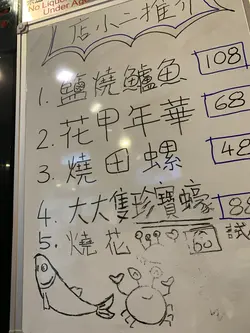 No Liquor
Under Age
店小二推介
1. 鹽燒鱸魚 108
2. 花甲年華 68
3. 燒田螺 48
4. 大大隻珍寶蠔 88
5. 燒花 60